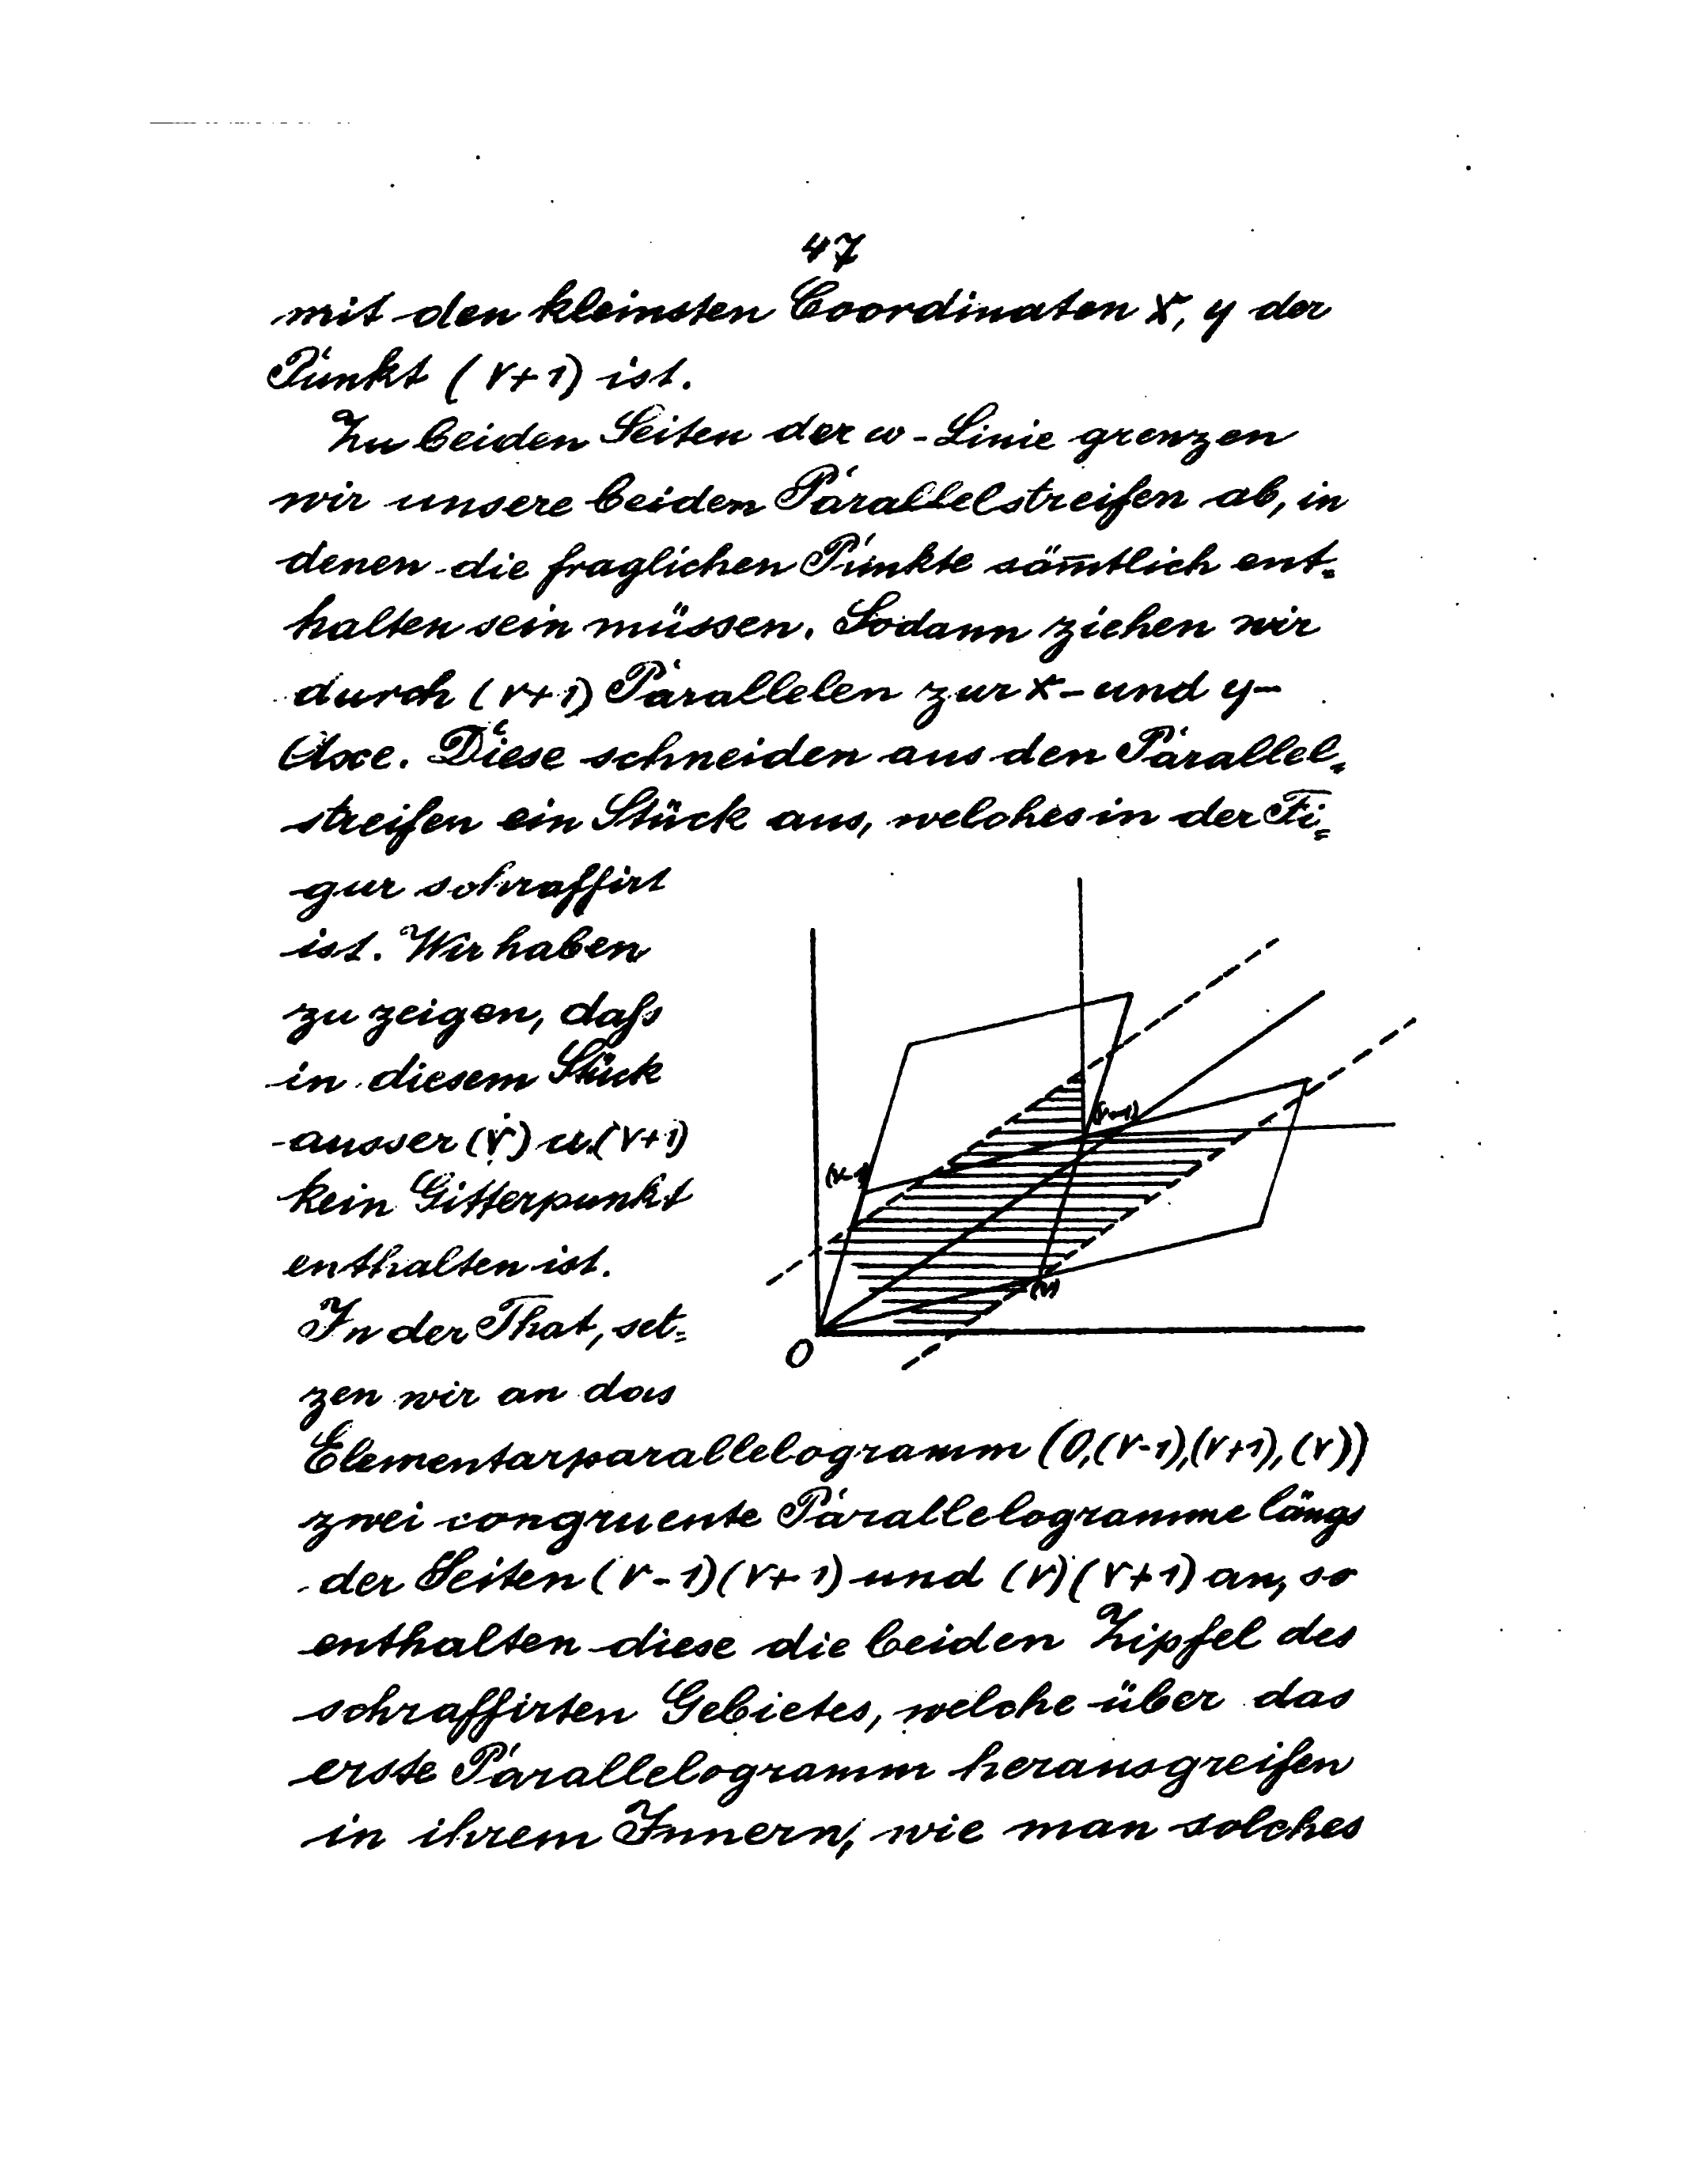 47
mit den kleinsten Coordinaten x, y der
Punkt (ν+1) ist.
Zu beiden Seiten der ω-Linie grenzen
wir unsere beiden Parallelstreifen ab, in
denen die fraglichen Punkte säm̅tlich ent=
halten sein müssen. Sodann ziehen wir
durch (ν+1) Parallelen zur x- und y-
Axe. Diese schneiden aus den Parallel=
streifen ein Stück aus, welches in der Fi=
gur schraffirt
ist. Wir haben
zu zeigen, daſs
in diesem Stück
ausser (ν) u. (ν+1)
kein Gitterpunkt
enthalten ist.
In der That, set=
zen wir an das
(ν-1)
(ν)
O
Elementarparallelogramm (0,(ν-1),(ν+1),(ν))
zwei congruente Parallelogramme längs
der Seiten (ν-1)(ν+1) und (ν)(ν+1) an, so
enthalten diese die beiden Zipfel des
schraffirten Gebietes, welche über das
erste Parallelogramm herausgreifen
in ihrem Innern, wie man solches